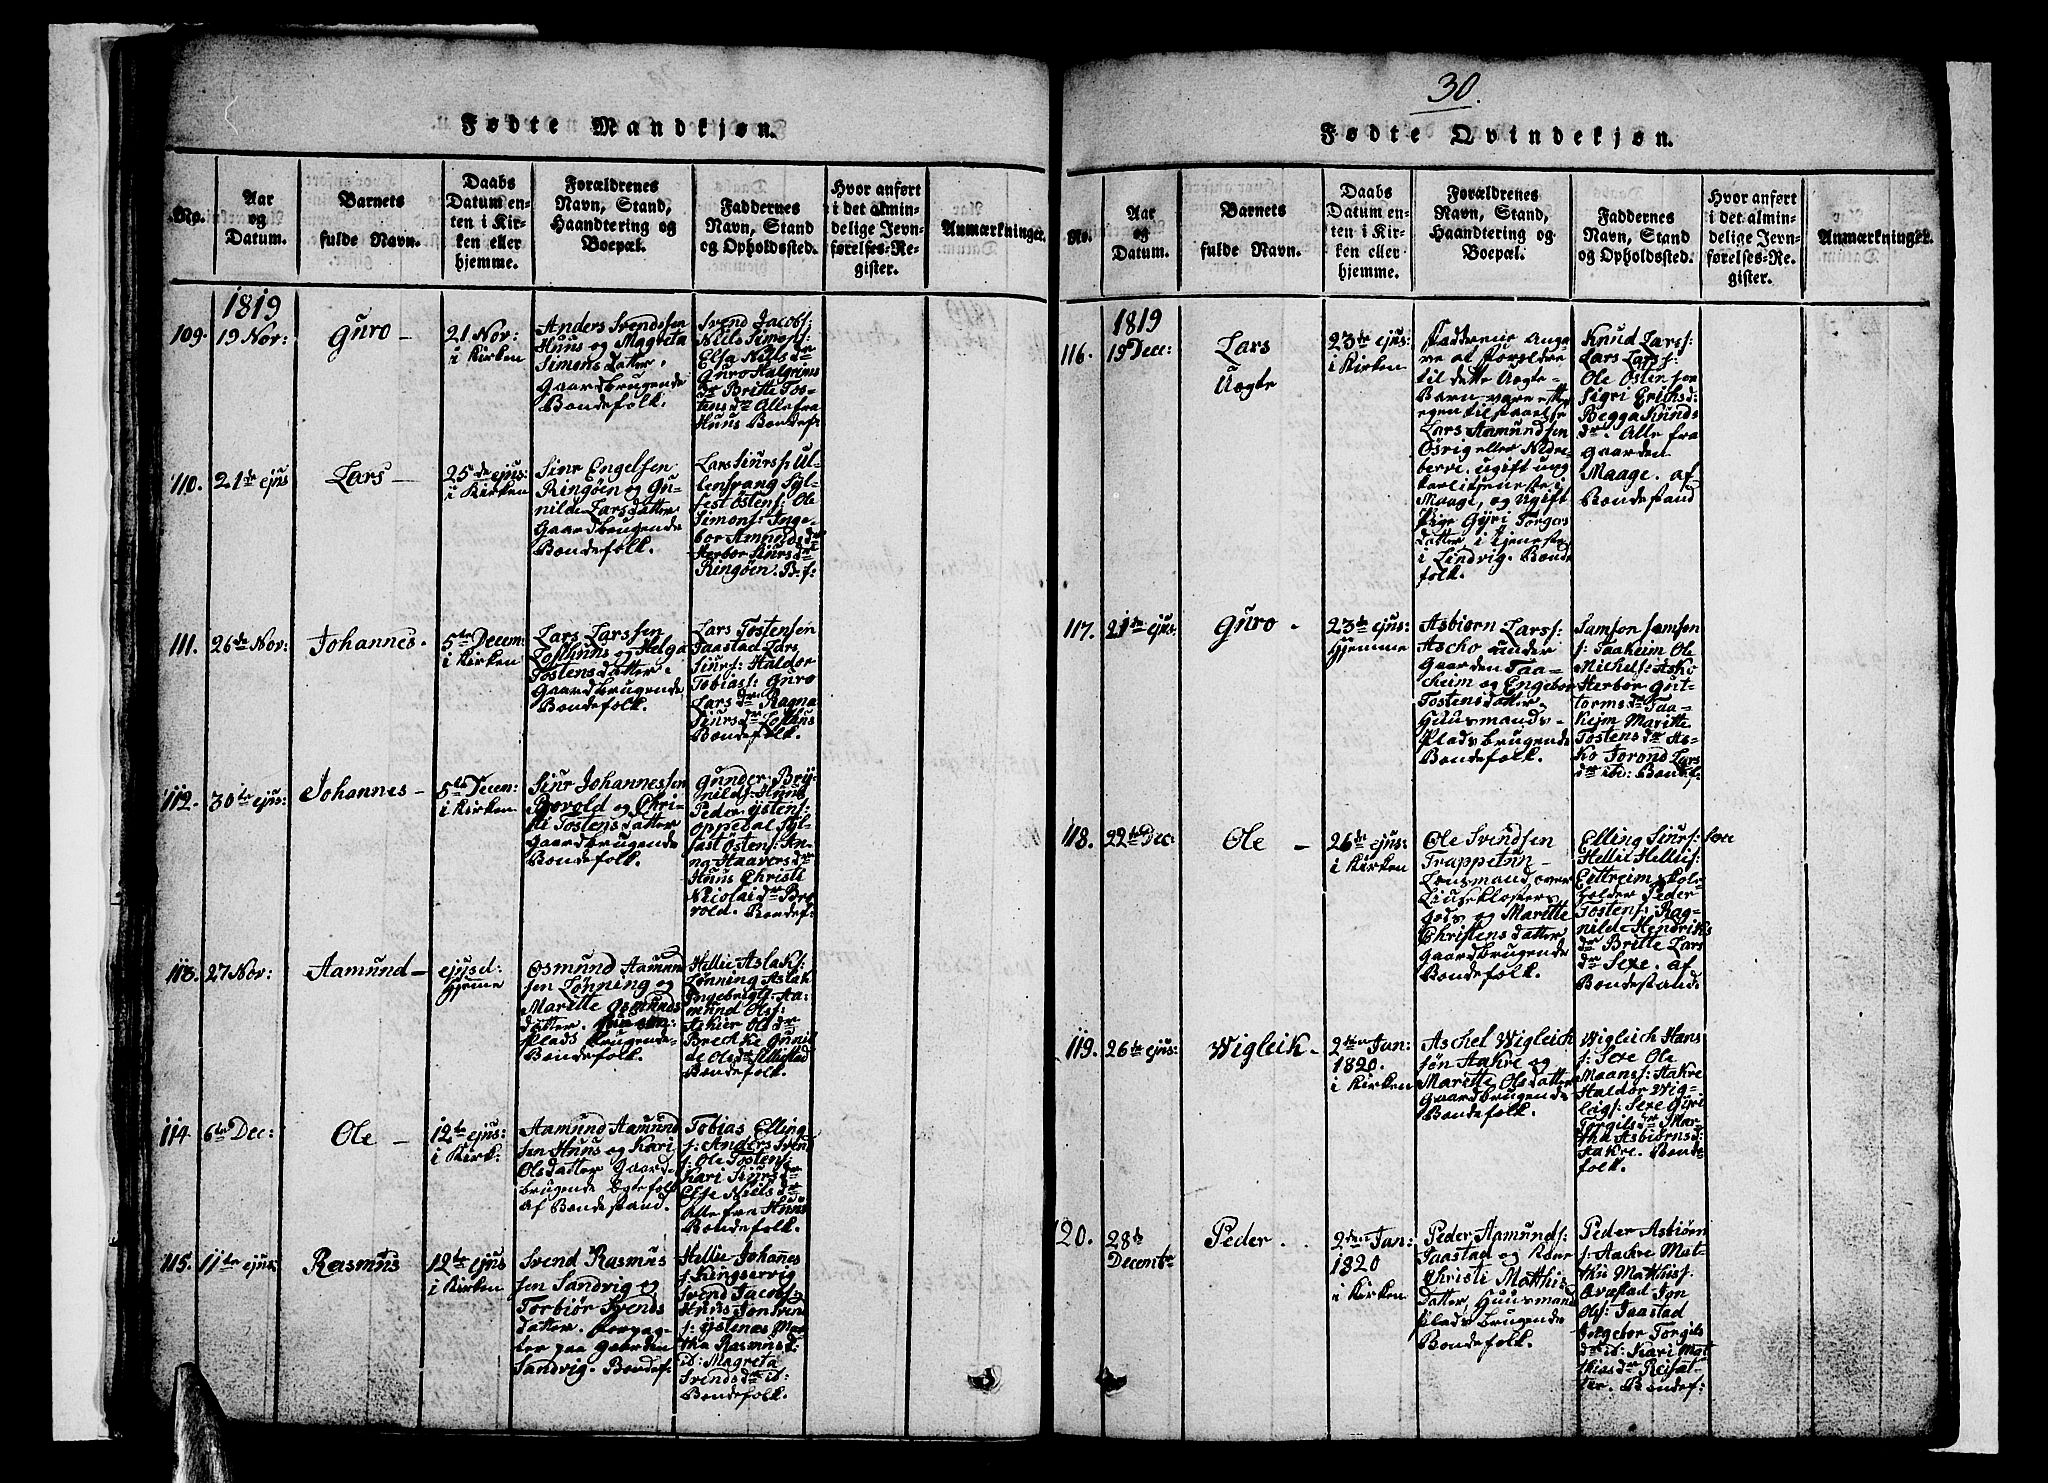 Fødte Mandkjøn.
No.
Aar
og
Datum.
Barnets
fulde Navn.
Daabs
Datum en-
ten i Kir-
ken eller
hjemme.
Forældrenes
Navn, Stand,
Haandtering og
Boepæl.
Faddernes
Navn, Stand
og Opholdssted.
Hvor anført
i det almin-
delige Jevn-
førelses-Re-
gister.
Anmærkninger.
1819
109.
19 Nov:
Guro –
21 Nov:
i Kirken
Anders Svendssen
Huus og Magreta
Simons Datter.
Gaardbrugende
Bondefolk.
Svend Jacobs:
Niels Simons:
Elsa Niels dr
Guro Halgrims
dr Britte Tos-
tens dr Alle fra
Huus Bondef:
110.
21de ejus
Lars –
25de ejus:
i Kirken
Siur Engelsen
Ringøen og Gu-
nilde Larsdatter
Gaardbrugende
Bondefolk.
Lars Siurss: Ul-
lensvang Syl-
fest Ostens: Ole
Simons: Inge-
bor Amunds dr
Herbor Siurs dr
Ringøen. B. f:
111.
26de Nov:
Johannes.
5te Decem:
i Kirken
Lars Larssen
Lofthuus og Helga
Tostens Datter.
Gaardbrugende
Bondefolk.
Lars Tostensen
Jaastad Lars
Siurs: Haldor
Tobias: Guro
Lars dr Ragna
Siurs dr Lofthuus
Bondefolk.
112.
30te ejus:
Johannes –
5te Decem:
i Kirken
Siur Johannessen
Børvold og Chri-
sti Tostens datter
Gaardbrugende
Bondefolk.
Gunder Bryj-
nilds: Huus
Peder Ystens:
Oppedal Syl-
fast Ostens: An-
na Haavers dr
Huus Christi
Nicolai dr Bør-
vold. Bondef:
113.
27 Nov:
Aamund –
ejusd:
hjemme
Osmund Aamund
sen Lønning og
Maritte Osmunds
datter.
Plads brugende
Bondefolk.
Hellie Aslaks:
Lønning Aslak
Ingebrigts: Aa-
mund Ols:
Askier Ols dr
Brecke Gunil-
de Ols dr
Bondefolk.
114
6te Dec:
Ole –
12te ejus:
i Kirk:
Aamund Aamund
sen Huus og Kari
Olsdatter Gaard-
brugende Egtefolk
af Bondestand.
Tobias Elling
s: Anders Svend
s: Ole Tostens:
Kari Siurs dr
Else Niels dr
Alle fra Huus
Bondefolk.
115.
11te ejus:
Rasmus
12te ejus
i Kirken
Svend Rasmus
sen Sandvig og
Torbiør Svends
datter. Forpag-
ter paa Gaarden
Sandvig. Bondef.
Hellie Johannes
s: Kingservig
Svend Jacobs:
Huus Jon Svend
s: Ystenæs Mar-
tha Rasmusd:
id: Magreta
Svends dr id:
Bondefolk.
30.
Fødte Qvindekjøn.
No.
Aar
og
Datum.
Barnets
fulde Navn.
Daabs
Datum en-
ten i Kir-
ken eller
hjemme.
Forældrenes
Navn, Stand,
Haandtering og
Boepæl.
Faddernes
Navn, Stand
og Opholdssted.
Hvor anført
i det almin-
delige Jevn-
førelses-Re-
gister.
Anmærkninger.
1819
116.
19 Dec:
Lars
Uægte
23de ejus:
i Kirken
Fadderne anga-
ve at Foreldre
til dette Uægte
Barn vare efter
egen tilstaaelse
Lars Aamundsen
eller Nedre-
berve. ugift ung
karl i tieneste i
Maage, og Ugift
Pige Gyri Torgers
datter i tieneste
i Lindvig. Bonde
folk.
Knud Lars:
Lars Lars:
Ole Ostensen
Sigri Erichsd:
Begga Knuds
dr. Alle fra
Gaarden
Maage. af
Bondestand
117.
21de ejus:
Guro –
23de ejus:
hjemme
Asbiørn Lars:
Ascho under
Gaarden Jaa-
cheim og Engebor
Tostens datter
Huusmands-
Plads brugende
Bondefolk.
Samson Samson
s: Jaakeim Ole
Michels: Asko
Herbor Gut-
torms dr Jaa-
keim Maritte
Tostens dr As-
ko Torond Lars
dr ibid: Bondef.
118.
22de Dec:
Ole –
26de ejus:
i Kirken
Ole Svendsen
Trappetun –
Lensmand over
Liuseklosters
Gods og Maritte
Christens datter
Gaardbrugende
Bondefolk.
Elling Siurs: Sexe
Hellie Hellies:
Eittreim Skole-
holder Peder
Tostens: Rag-
nilde Hendriks
dr Britte Lars
dr Sexe. af
Bondestand.
119.
26de ejus:
Wigleik –
2den Jan:
1820.
i Kirken
Aschel Wigleich
søn Aakre og
Maritte Olsdatter
Gaardbrugende
Bondefolk.
Wigleich Hans
s: Sexe Ole
Maans: Aakre
Haldor Wig-
leigs: Sexe Gyri
Torgils dr Mar-
tha Asbiørnsd:
Aakre. Bonde
folk.
120.
28de
Decembr
Peder . .
2den Jan:
1820
i Kirken
Peder Aamunds:
Jaastad og Kone
Christi Matthis
datter, Huusmand
Plads brugende
Bondefolk.
Peder Asbiørn
s: Aakre Mat-
this Mathis:
Qvæstad Jon
Ols: Jaastad
Ingebor Torgils
dr id: Kari Mat
hias dr Reisæt-
ter. Bondef: